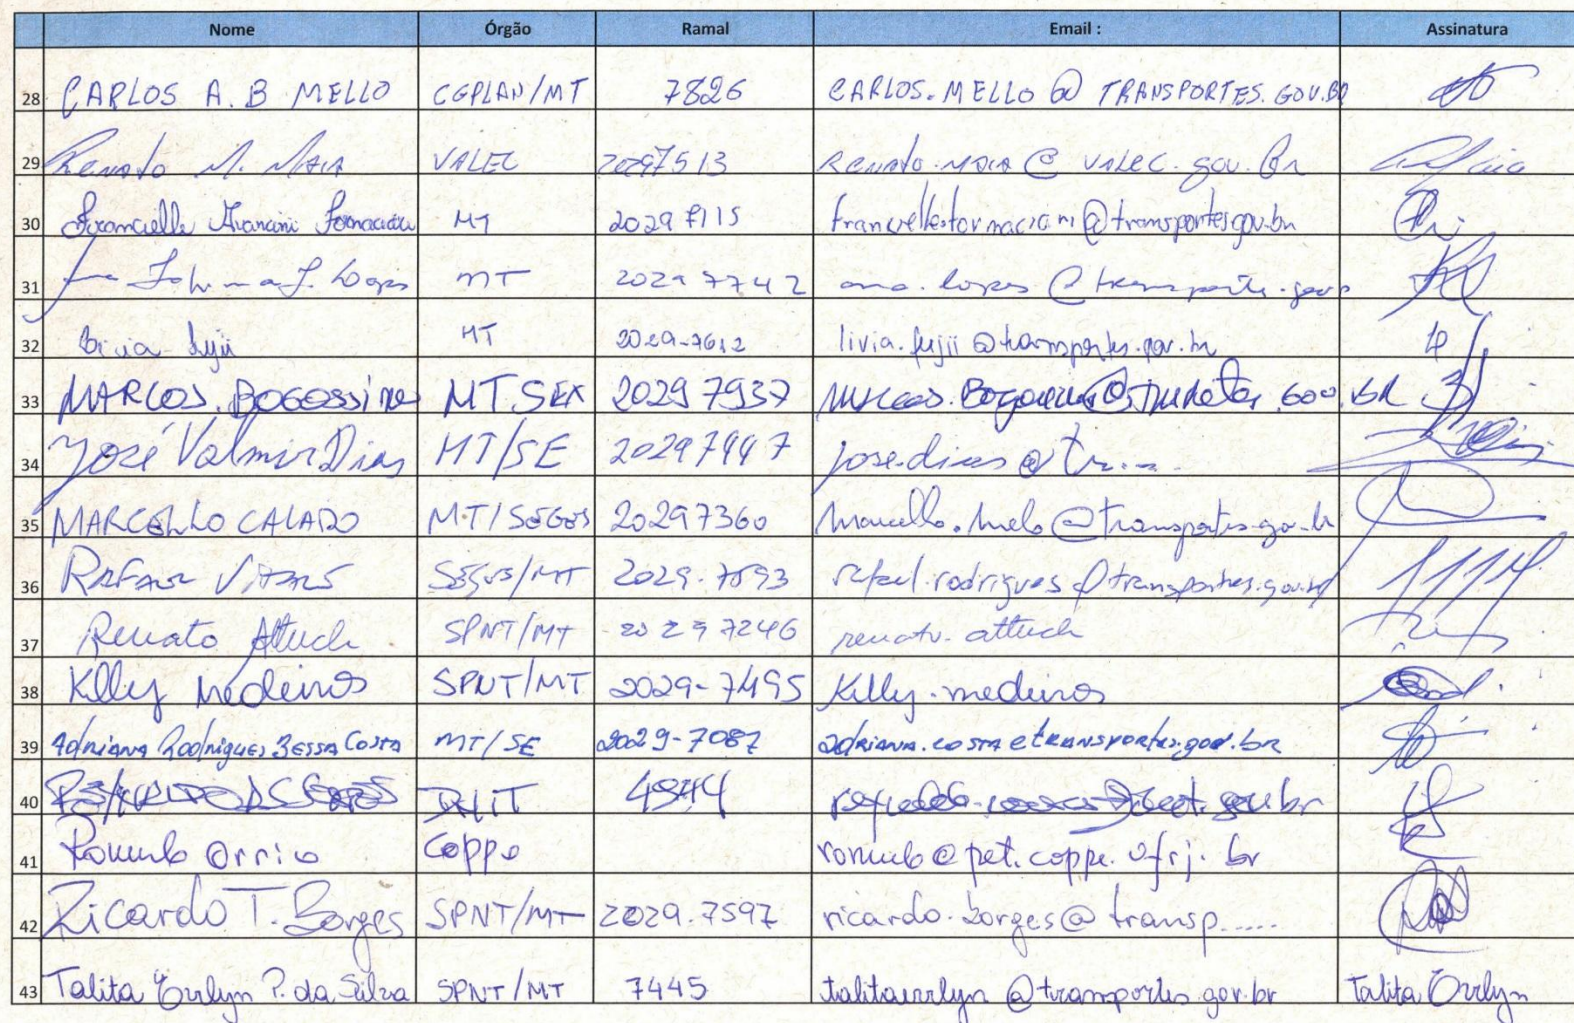 Nome Órgão Ramal Email : Assinatura
28 CARLOS A. B. MELLO CGPLAN/MT 7826 CARLOS.MELLO @ TRANSPORTES.GOV.BR
29 Renato M. Maia VALEC 20297513 Renato.maia @ valec.gov.br
30 Francielle Avancini Fornaciari MT 2029 7115 franciellefornaciari@transportes.gov.br
31 MT 2029 7742 ana.lopes @transporte.gov
32 Livia Fujii MT 2029-7612 livia.fujii @transportes.gov.br
33 MARCOS. BOGOSSIAN MT. 2029 7937
34 José Valmir Dias MT/SE 2029 7447 jose.dias @ tr....
35 MARCELLO CALADO MT/SEGES 20297360 marcello.melo @transportes.gov.br
36 SEGES/MT 2029-7593 rafael.rodrigues @transportes.gov.br
37 Renato Attuch SPNT/MT 2029 7246 renato.attuch
38 Killy medeiros SPNT/MT 2029-7495 Killy.medeiros
39 Adriana Rodrigues Bessa Costa MT/SE 2029-7087 adriana.costa@transportes.gov.br
40
41 Romulo Orrico Coppe romulo@pet.coppe.ufrj.br
42 Ricardo T. Borges SPNT/MT 2029.7597 ricardo.borges@transp.....
43 Talita P. da Silva SPNT/MT 7445 @transportes.gov.br Talita